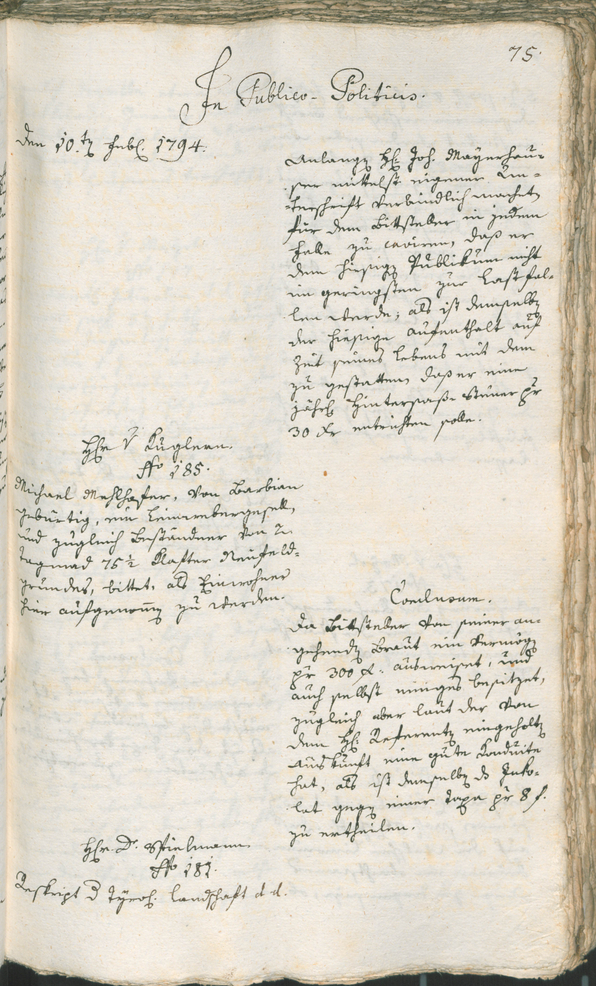 75.
In Publico-Politicis.
Den 10.t Febr. 1794.
Anlangg H. Joh. Mayerhau-
ser mittelst eigener Un-
terschrift verbindlich machet,
für dem Bittsteller in jedem
Falle zu caviren, daß er
dem hiesigg Publikum nicht
im geringsten zur Last fal-
len werde; als ist demselbg
der hiesige Aufenthalt auf
Zeit seines Lebens mit dem
zu gestatten, daß er eine
jährl. Hintersaß-Steuer pr
30 Xr entrichten solle.
Hr. v Kuglern.
No 185.
Michael Mehlhofer, von Barbian
gebürtig, ein Leinwebergesell,
und zugleich Beständner von 2.
Tagmad 75 ½ Klafter Neufeld-
grundes, bittet, als Einwohner
hier aufgenomm zu werden.
Conclusum.
Da Bittsteller von seiner an-
gehendg Braut ein Vermögg
pr 300 f. ausweiset, und
auch selbst einiges besitzet,
zugleich aber laut der von
dem H. Referentg eingeholtg
Auskunft eine gute Conduite
hat, als ist demselbg das Inko-
lat gegg einer Taxe pr 8 f.
zu ertheilen.
Hr. D. Stielmann.
No 181.
Reskript d Tyrol. Landschaft d d.